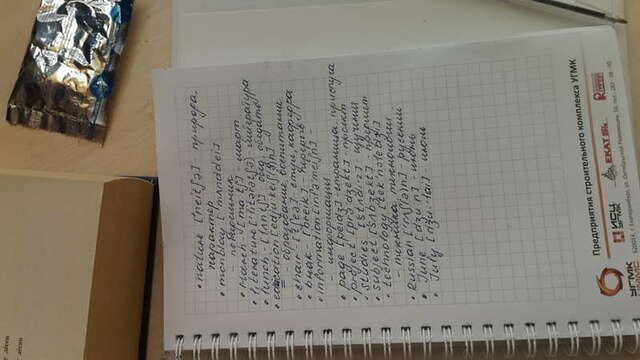 лёгки
лёгки
• nature [ˈneitʃə] - природа,
характер
• monday [ˈmʌndei]
- понедельник
• March - [ma:tʃ] - март
• literature [ˈlitərətʃə] - литература
• lunch - [lʌntʃ] - обед, обедать
• education [edju kei ʃ(ə)n] -
- образование, воспитание
• chair - [tʃeə] - стул, кафедра
• break - [breik] - перерыв
• information [infəˈmeiʃn] -
- информация
• page [peidʒ] - страница, прислуга
• project [prəˈdʒekt] - проект
• Studies [ˈstʌdi:z] - изучения
• subject [sʌbʒekt] - предмет
• technology [tekˈnɒlədʒi]
- техника, технологии
• Russian [ˈrʌʃ(ə)n] - русский
• June [dʒu:n] - июнь
• July [dʒu:ˈlai] - июль
Предприятия строительного комплекса УГМК
УГМК
ИСЦ
УГМК
ЕКАТ
620014, г. Екатеринбург, ул. Октябрьской Революции, 56, тел.: 283 - 08 - 00